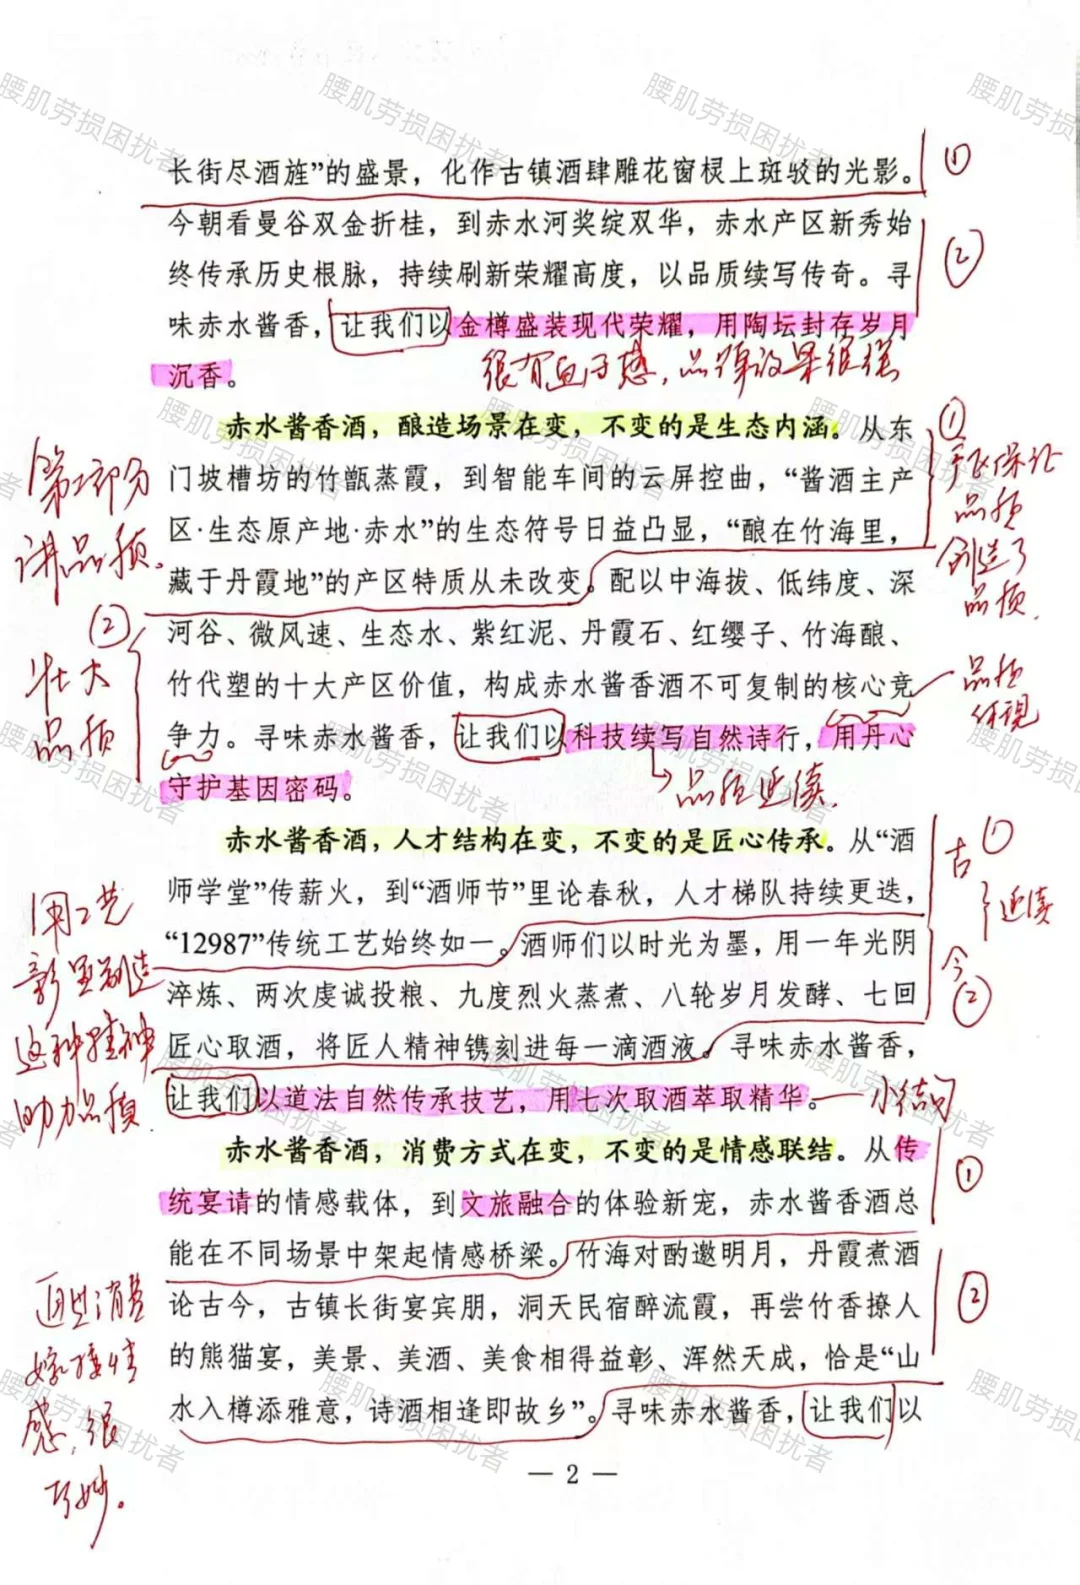 长街尽酒旌”的盛景，化作古镇酒肆雕花窗棂上斑驳的光影。
①
今朝看曼谷双金折桂，到赤水河奖绽双华，赤水产区新秀始
②
终传承历史根脉，持续刷新荣耀高度，以品质续写传奇。寻
味赤水酱香，让我们以金樽盛装现代荣耀，用陶坛封存岁月
沉香。
很有画面感，品弹效果很强
赤水酱香酒，酿造场景在变，不变的是生态内涵。从东
①
门坡槽坊的竹甑蒸霞，到智能车间的云屏控曲，“酱酒主产
区·生态原产地·赤水”的生态符号日益凸显，“酿在竹海里，
藏于丹霞地”的产区特质从未改变。配以中海拔、低纬度、深
品质
创造了
品质
讲品质。
②
河谷、微风速、生态水、紫红泥、丹霞石、红缨子、竹海酿、
竹代塑的十大产区价值，构成赤水酱香酒不可复制的核心竞
壮大
品质
品质
体现
争力。寻味赤水酱香，让我们以科技续写自然诗行，用丹心
守护基因密码。
品质延续
赤水酱香酒，人才结构在变，不变的是匠心传承。从“酒
①
古
师学堂”传薪火，到“酒师节”里论春秋，人才梯队持续更迭，
延续
“12987”传统工艺始终如一。酒师们以时光为墨，用一年光阴
今
②
淬炼、两次虔诚投粮、九度烈火蒸煮、八轮岁月发酵、七回
匠心取酒，将匠人精神镌刻进每一滴酒液。寻味赤水酱香，
用工艺
彰显酿造
这种精神
助力品质
让我们以道法自然传承技艺，用七次取酒萃取精华。
小结句
赤水酱香酒，消费方式在变，不变的是情感联结。从传
①
统宴请的情感载体，到文旅融合的体验新宠，赤水酱香酒总
能在不同场景中架起情感桥梁。竹海对酌邀明月，丹霞煮酒
②
论古今，古镇长街宴宾朋，洞天民宿醉流霞，再尝竹香撩人
的熊猫宴，美景、美酒、美食相得益彰、浑然天成，恰是“山
水入樽添雅意，诗酒相逢即故乡”。寻味赤水酱香，让我们以
嫁接情
感，很
巧妙。
— 2 —
腰肌劳损困扰者